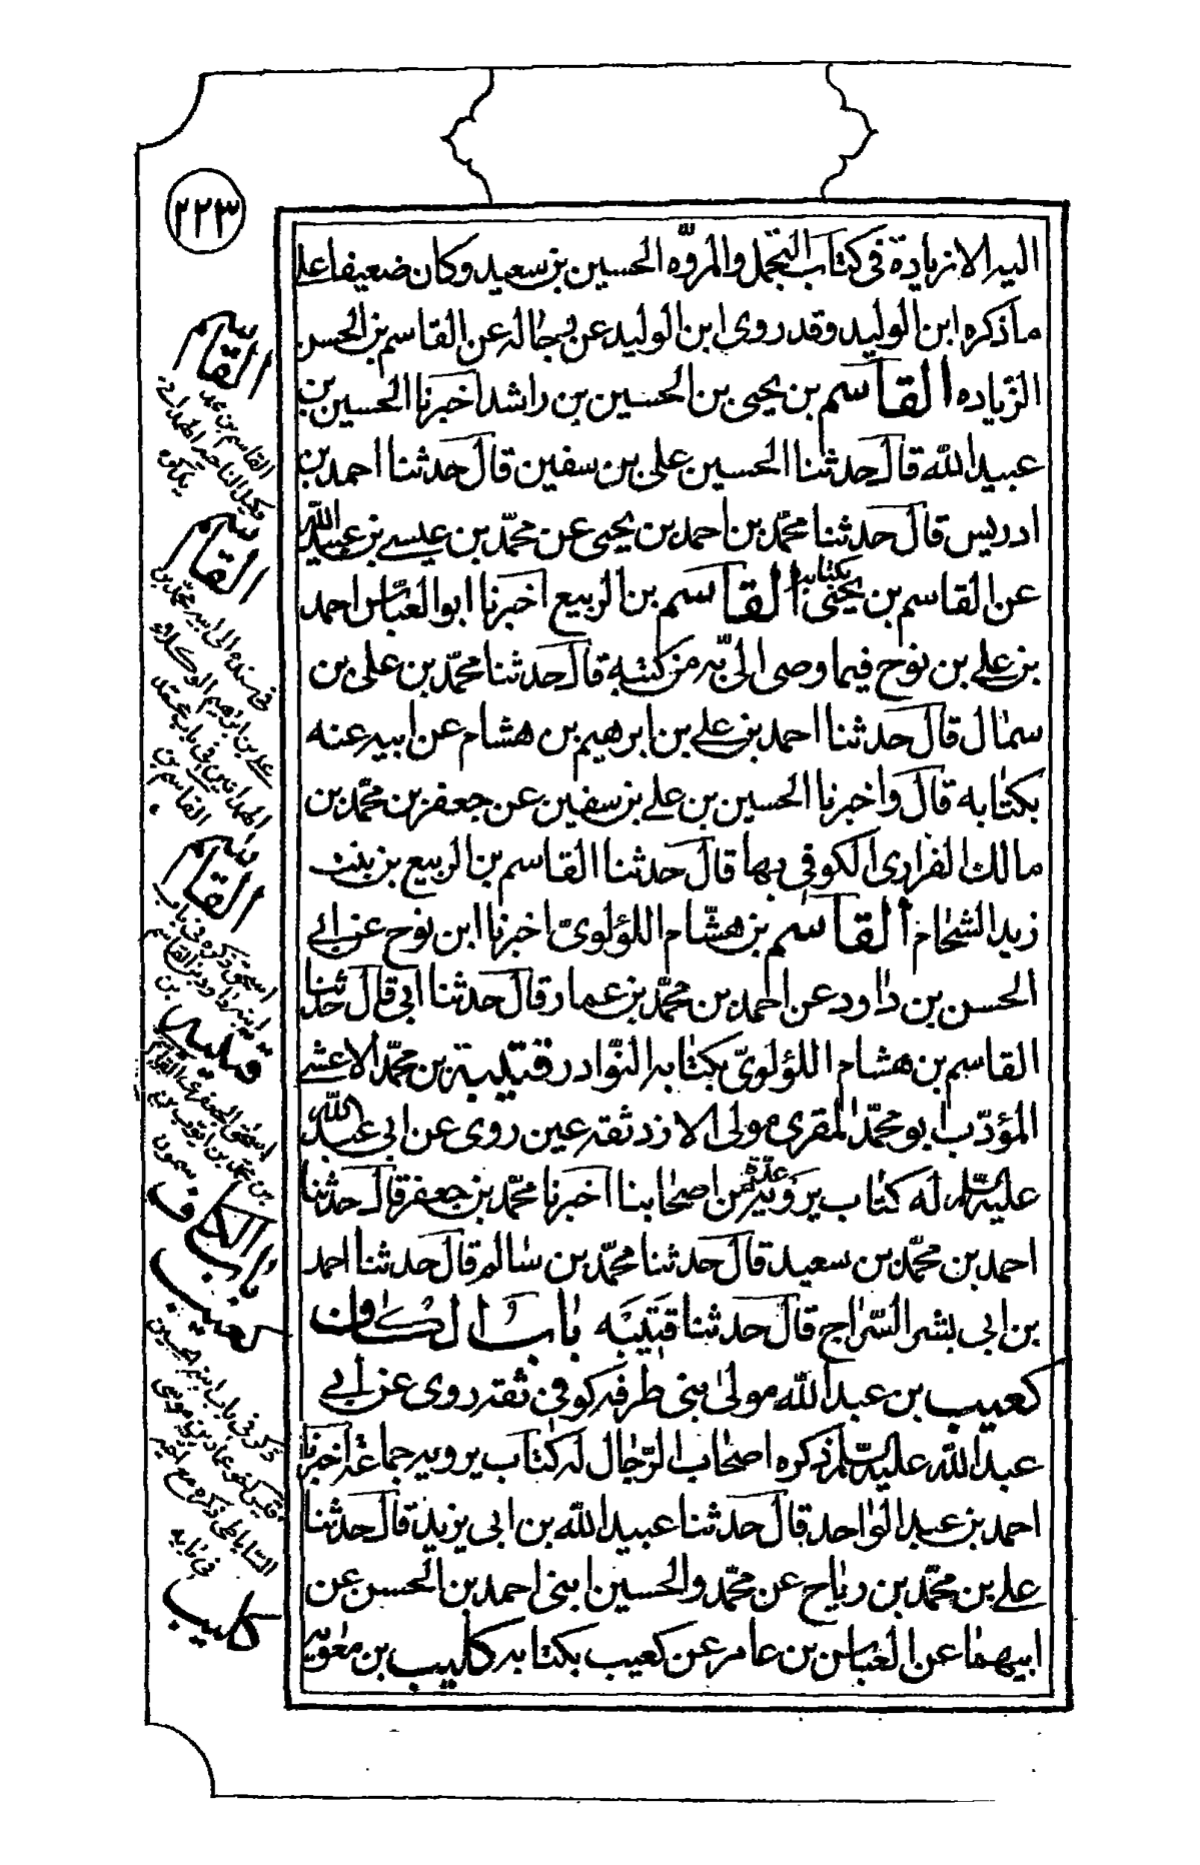 ٢٢٣
اليه الا زيادة في كتاب التجمل والمروّه الحسين بن سعيد وكان ضعيفا على
ما ذكره ابن الوليد وقد روى ابن الوليد عن رجاله عن القاسم بن الحسن
الزّياده القاسم بن يحيى بن الحسين بن راشد اخبرنا الحسين بن
عبيد الله قال حدثنا الحسين على بن سفين قال حدثنا احمد بن
ادريس قال حدثنا محمّد بن احمد بن يحيى عن محمّد بن عيسى بن عبيد الله
عن القاسم بن يحيى بكتابه القاسم بن الربيع اخبرنا ابو العبّاس احمد
بن على بن نوح فيما وصى الىّ به من كتبه قال حدثنا محمّد بن على بن
سمال قال حدثنا احمد بن على بن ابرهيم بن هشام عن ابيه عنه
بكتابه قال واخبرنا الحسين بن على بن سفين عن جعفر بن محمّد بن
مالك الفزارى الكوفى بها قال حدثنا القاسم بن الربيع بن بنت
زيد الشحّام القاسم بن هشّام اللؤلوىّ اخبرنا ابن نوح عن ابى
الحسن بن داود عن احمد بن محمّد بن عمار قال حدثنا ابى قال حدثنا
القاسم بن هشام اللؤلوىّ بكتابه النّوادر قتيبة بن محمّد الاعشى
المؤدّب ابو محمّد المقرى مولى الازد ثقه عين روى عن ابى عبد الله
عليه السّلم له كتاب يرويه عدّة من اصحابنا اخبرنا محمّد بن جعفر قال حدثنا
احمد بن محمّد بن سعيد قال حدثنا محمّد بن سالم قال حدثنا احمد
بن ابى بشر السّراج قال حدثنا قتيبه باب الكاف
كعيب بن عبد الله مولى بنى طرفه كوفى ثقه روى عن ابى
عبد الله عليه السّلم ذكره اصحاب الرّجال له كتاب يرويه جماعة اخبرنا
احمد بن عبد الواحد قال حدثنا عبيد الله بن ابى يزيد قال حدثنا
على بن محمّد بن رياح عن محمّد والحسين ابنى احمد بن الحسن عن
ابيهما عن العباس بن عامر عن كعيب بكتابه كليب بن معويه
القاسم
القاسم بن محمد
وكيل الناحيه الهمدانى
يذكره
القاسم
فى سنده الى ابيه محمد بن
على بن ابرهيم الوكلاء
الهمدانيين فى باب محمد بن
القاسم بن
القاسم
اسحق ذكره فى باب
ابنه داود بن القاسم بن
قتيبه
سمون
باب الكاف
كعيب
ذكر فى باب ابنه الحسين
الساباطى ذكره مع اخيه
فى بابه
كليب